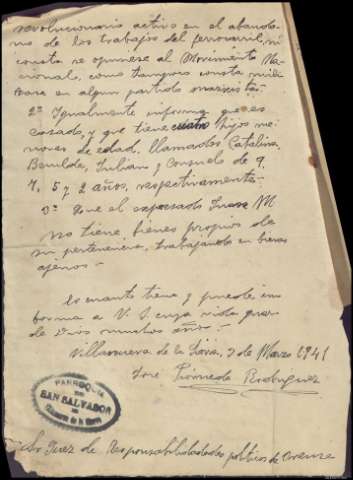 revolucionario activo en el abando-
no de los trabajos del ferrocarril, ni
consta se opusiese al Movimiento Na-
cional, como tampoco consta mili-
tase en algun partido marxista.
2º Igualmente informa que es
casado, y que tiene cuatro hijos me-
nores de edad, llamados Catalina,
Benilde, Julian y Consuelo de 9
7, 5 y 2 años, respectivamente.-
3º Que el expresado Juan M
no tiene bienes propios de
su pertenencia, trabajando en bienes
ajenos.-
Es cuanto tiene y puede in-
formar a V. S. cuya vida guar-
de Dios muchos años.-
Villanueva de la 2 de Marzo 1941
José Rodriguez
PARROQUIA
DE
SAN SALVADOR
DE
Sr Juez de Responsabilidades politicas de Orense